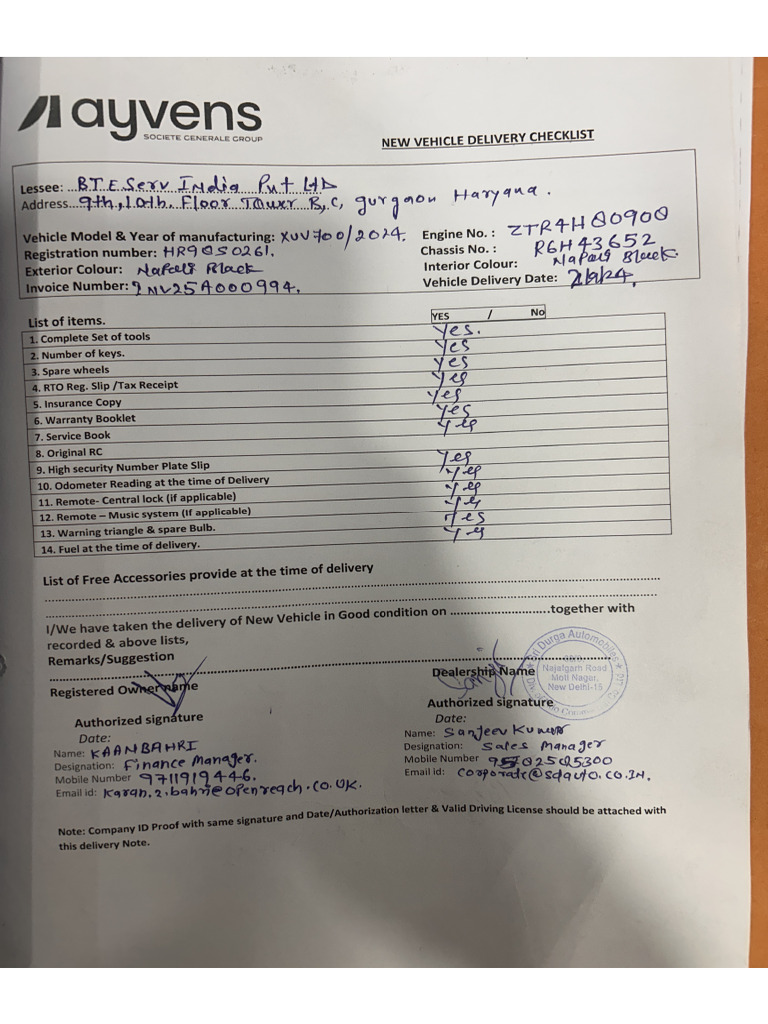 ayvens
SOCIETE GENERALE GROUP
NEW VEHICLE DELIVERY CHECKLIST
Lessee: B.T.E Serv India Pvt Ltd
Address 9th, 10th, Floor Tower B, C, gurgaon Haryana.
Vehicle Model & Year of manufacturing: XUV700/2024.
Engine No. : ZTR4H00900
Registration number: HR90S0261.
Chassis No. : R6H43652
Exterior Colour: Napoli Black
Interior Colour: Napoli Black
Invoice Number: INV25A000994.
Vehicle Delivery Date:
List of items.
YES / No
1. Complete Set of tools Yes.
2. Number of keys. Yes
3. Spare wheels Yes
4. RTO Reg. Slip /Tax Receipt Yes
5. Insurance Copy Yes
6. Warranty Booklet Yes
7. Service Book Yes
8. Original RC
9. High security Number Plate Slip Yes
10. Odometer Reading at the time of Delivery Yes
11. Remote- Central lock (if applicable) Yes
12. Remote – Music system (If applicable) Yes
13. Warning triangle & spare Bulb. Yes
14. Fuel at the time of delivery. Yes
List of Free Accessories provide at the time of delivery
I/We have taken the delivery of New Vehicle in Good condition on ............................together with
recorded & above lists,
Remarks/Suggestion
Registered Owner name
Dealership Name
Sri Durga Automobiles
Najafgarh Road
Moti Nagar,
New Delhi-15
Authorized signature
Date:
Name: KAANBAHRI
Designation: Finance Manager.
Mobile Number 9711919446.
Email id: Karan.2.bahri@openreach.co.uk.
Authorized signature
Date:
Name: Sanjeev Kumar
Designation: Sales Manager
Mobile Number
Email id: corporate@sdauto.co.in.
Note: Company ID Proof with same signature and Date/Authorization letter & Valid Driving License should be attached with
this delivery Note.